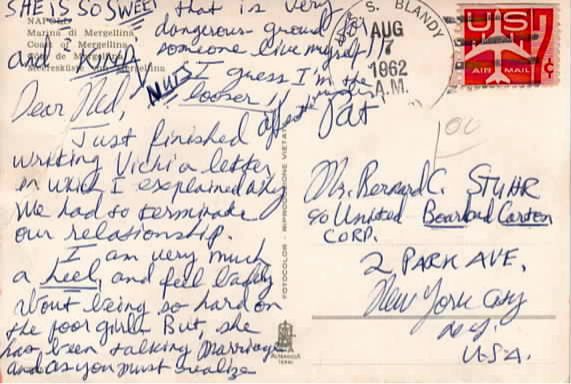 SHE IS SO SWEET
and KIND
NAPOLI
Marina di Mergellina
Coast of Mergellina
de Mergellina
Meeresküste Mergellina
Dear Ned,
Just finished
writing Vicki a letter
in which I explained why
we had to terminate
our relationship.
I am very much
a heel, and feel badly
'bout being so hard on
the poor girl. But, she
has been talking Marriage
and as you must realize
that is very
dangerous ground for
someone like myself!!
NUTS I guess I'm the
looser, after
Pat
FOTOCOLOR - RIPRODUZIONE VIETATA
TERNI
S. BLANDY
AUG
7
1962
A.M.
US
AIR MAIL
7¢
Mr. Bernard C. STUHR
c/o United Boarboard Carton
CORP.
2 PARK AVE,
New York City
N.Y.
U.S.A.